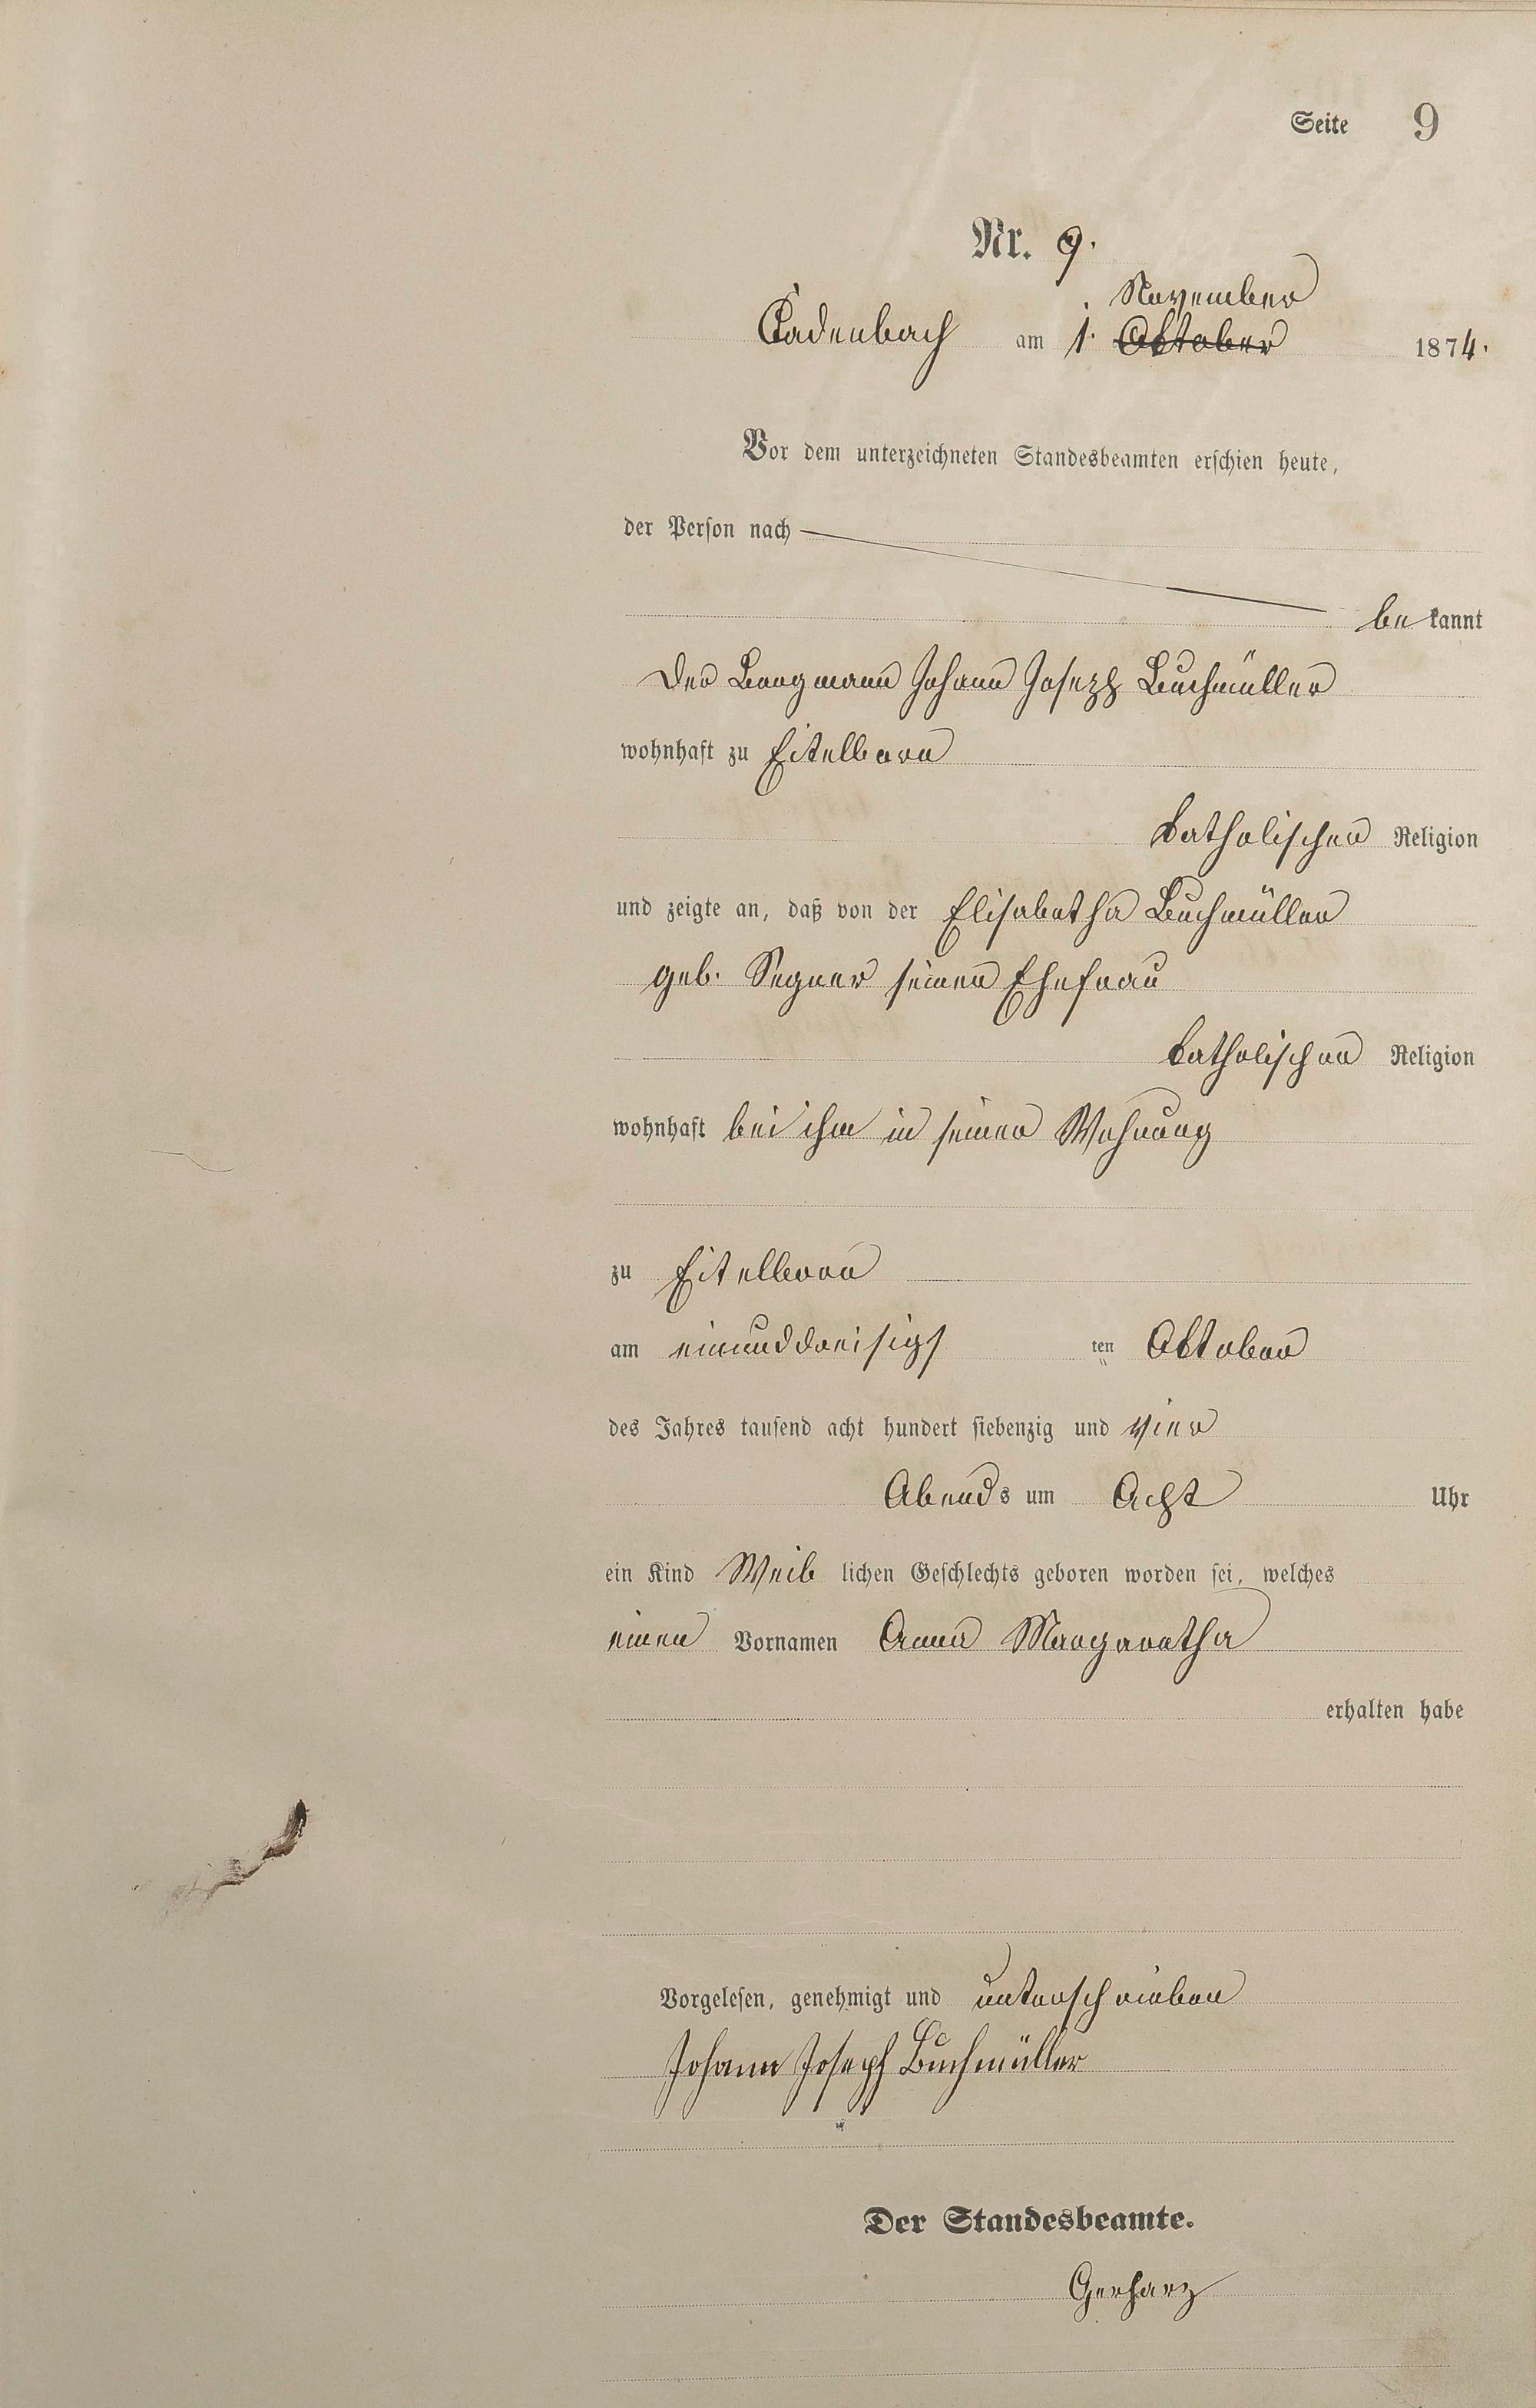 Seite 9
Nr. 9.
November
Cadenbach am 1. Oktober 1874.
Vor dem unterzeichneten Standesbeamten erschien heute,
der Person nach
bekannt
der Bergmann Johann Joseph Buchmüller
wohnhaft zu Eitelborn
katholischer Religion
und zeigte an, daß von der Elisabetha Buchmüller
geb. Segner seiner Ehefrau
katholischer Religion
wohnhaft bei ihm in seiner Wohnung
zu Eitelborn
am einunddreisigsten Oktober
des Jahres tausend acht hundert siebenzig und vier
Abends um Acht Uhr
ein Kind Weiblichen Geschlechts geboren worden sei, welches
einen Vornamen Anna Margaretha
erhalten habe
Vorgelesen, genehmigt und unterschrieben
Johann Joseph Buchmüller
Der Standesbeamte.
Gerharz